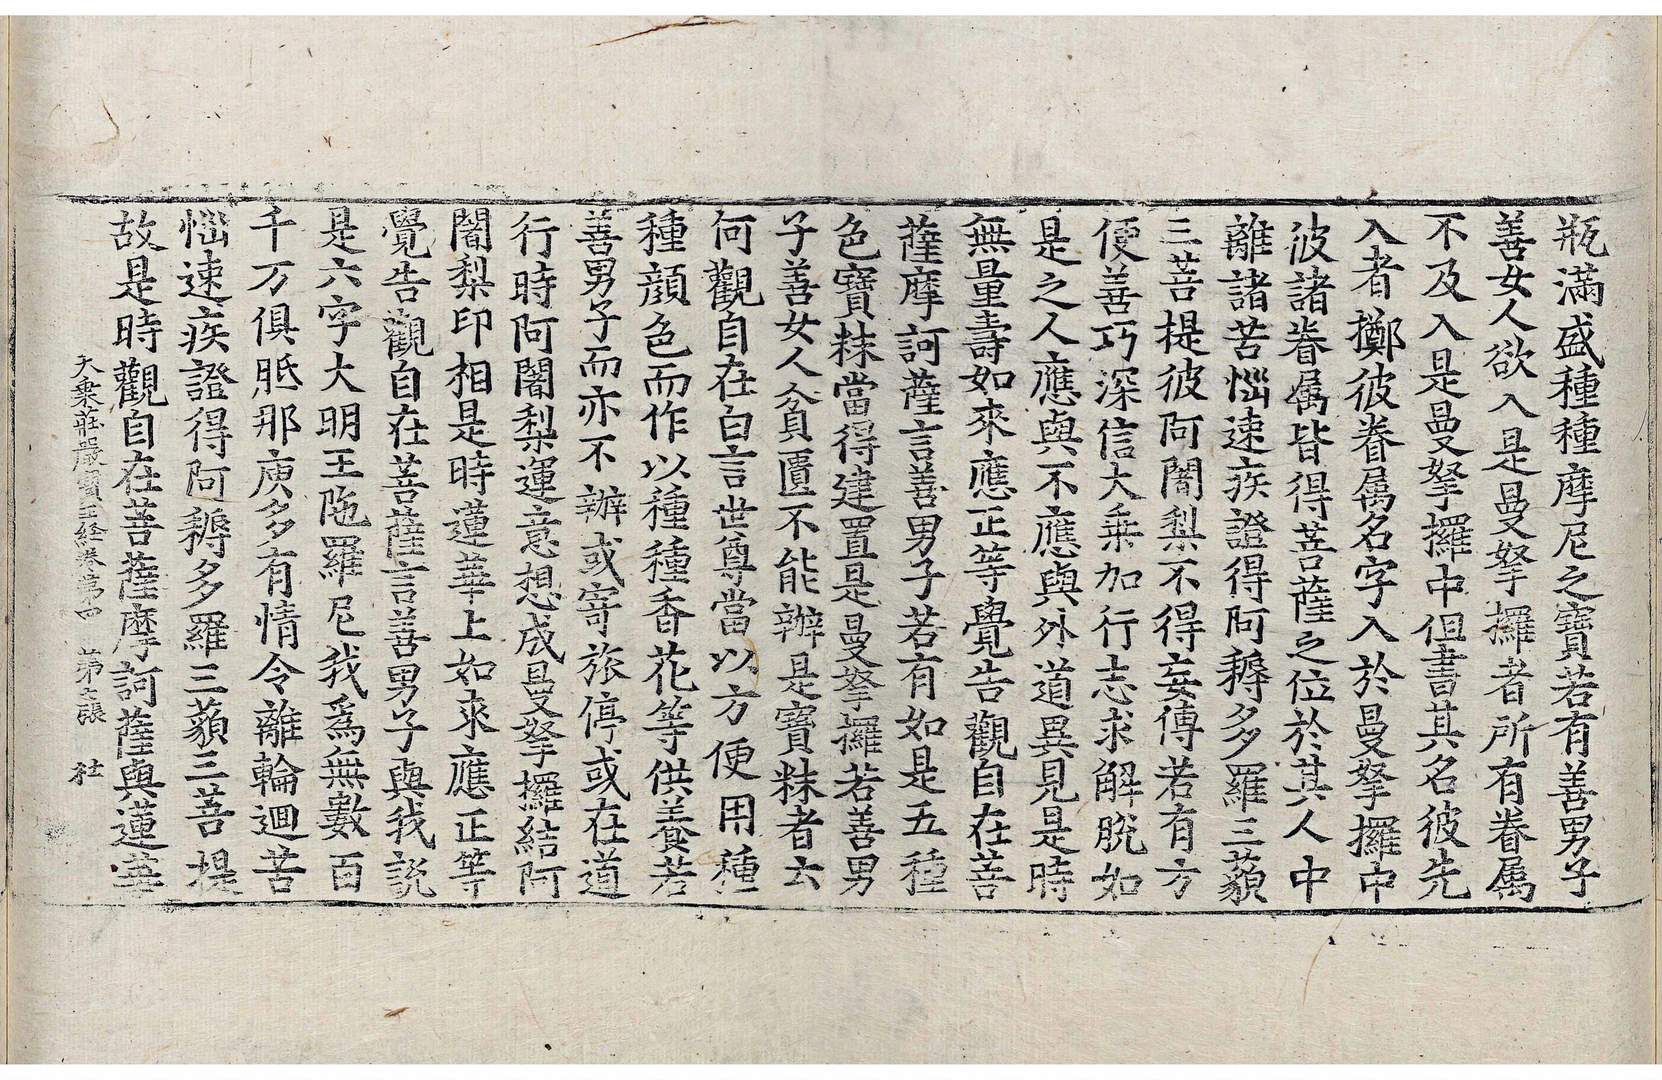 瓶滿盛種種摩尼之寶若有善男子
善女人欲入是曼拏攞者所有眷属
不及入是曼拏攞中但書其名彼先
入者擲彼眷属名字入於曼拏攞中
彼諸眷属皆得菩薩之位於其人中
離諸苦惱速疾證得阿耨多羅三藐
三菩提彼阿闍梨不得妄傳若有方
便善巧深信大乗加行志求解脫如
是之人應與不應與外道異見是時
無量壽如來應正等覺告觀自在菩
薩摩訶薩言善男子若有如是五種
色寶粖當得建置是曼拏攞若善男
子善女人貧匱不能辦是寶粖者云
何觀自在白言世尊當以方便用種
種顔色而作以種種香花等供養若
善男子而亦不辦或寄旅停或在道
行時阿闍梨運意想成曼拏攞結阿
闍梨印相是時蓮華上如來應正等
覺告觀自在菩薩言善男子與我說
是六字大明王陁羅尼我爲無數百
千万俱胝那庾多有情令離輪迴苦
惱速疾證得阿耨多羅三藐三菩提
故是時觀自在菩薩摩訶薩與蓮華
大乗莊嚴寶王経卷第四 第之張 社